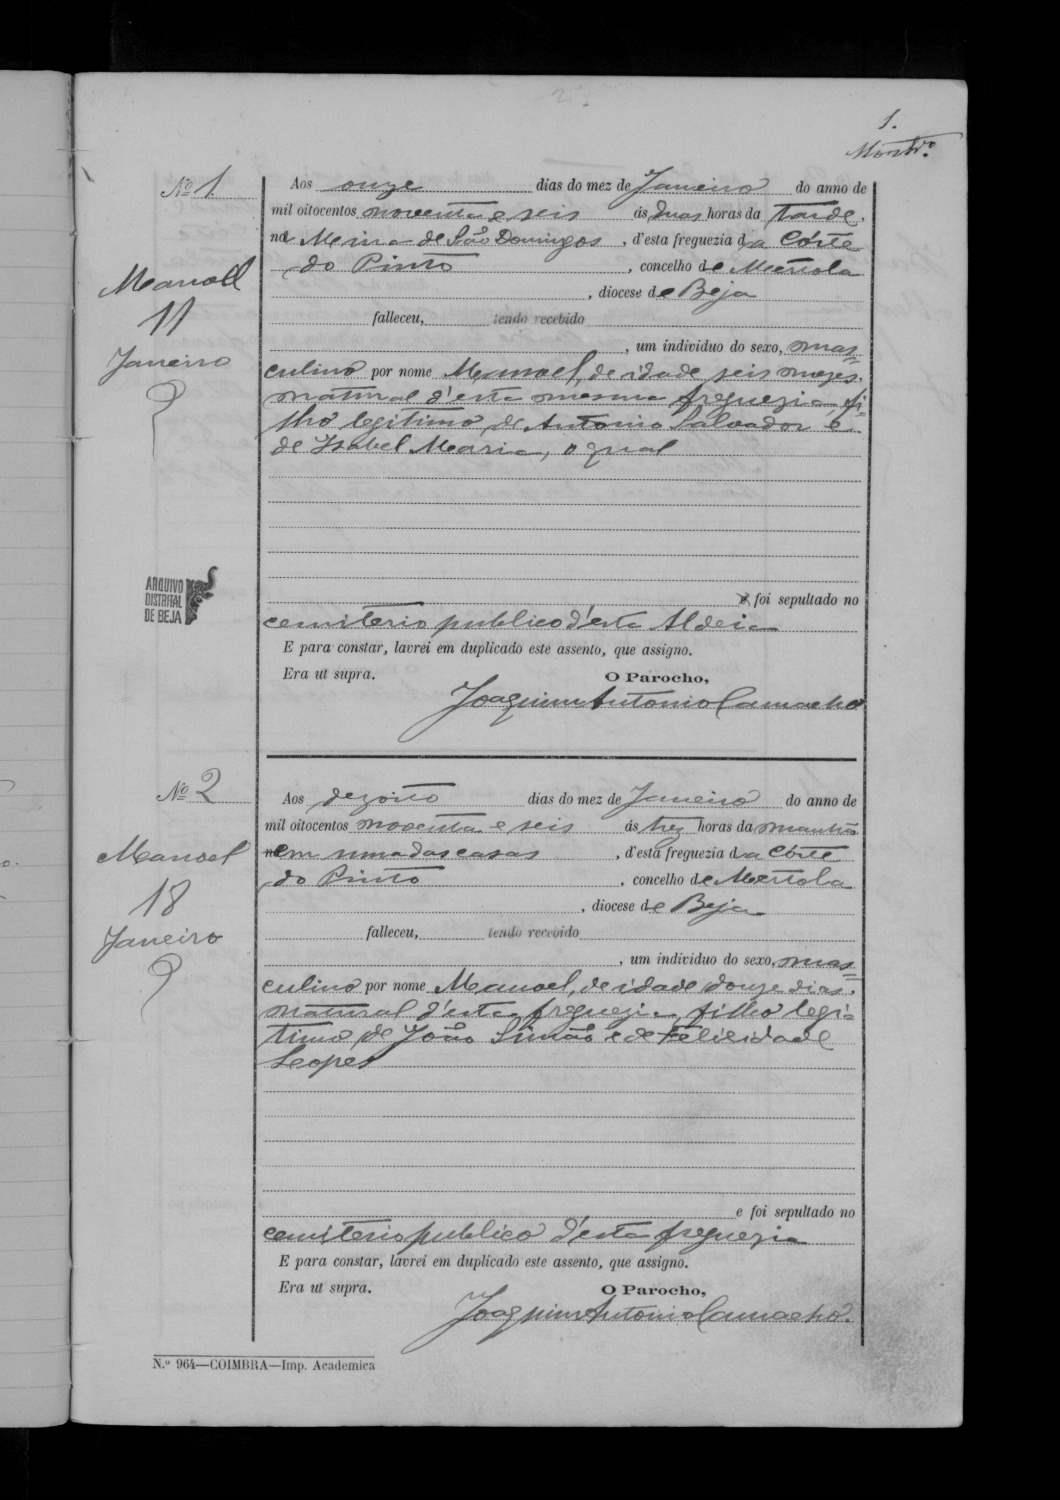 1.
Nº 1.
Manoel
11
Janeiro
Aos onze dias do mez de Janeiro do anno de
mil oitocentos noventa e seis ás duas horas da tarde,
na Mina de São Domingos, d'esta freguezia da Côrte
do Pinto, concelho de Mertola
, diocese de Beja
falleceu, tendo recebido
, um individuo do sexo, mas=
culino por nome Manoel, de idade seis mezes,
natural d'esta mesma freguezia, fi=
lho legitimo de Antonio Salvador e
de Isabel Maria, o qual
ARQUIVO
DISTRITAL
DE BEJA
foi sepultado no
cemiterio publico d'esta Aldeia
E para constar, lavrei em duplicado este assento, que assigno.
Era ut supra. O Parocho,
Joaquim Antonio Camacho
Nº 2
Manoel
18
Janeiro
Aos dezoito dias do mez de Janeiro do anno de
mil oitocentos noventa e seis ás trez horas da manhã
em uma das casas, d'esta freguezia da Côrte
do Pinto, concelho de Mertola
, diocese de Beja
falleceu, tendo recebido
, um individuo do sexo, mas=
culino por nome Manoel, de idade douze dias,
natural d'esta freguezia, filho legi=
timo de João Simão e de Felicidade
Lopes
e foi sepultado no
cemiterio publico d'esta freguezia
E para constar, lavrei em duplicado este assento, que assigno.
Era ut supra. O Parocho,
Joaquim Antonio Camacho.
N.º 964—COIMBRA—Imp. Academica